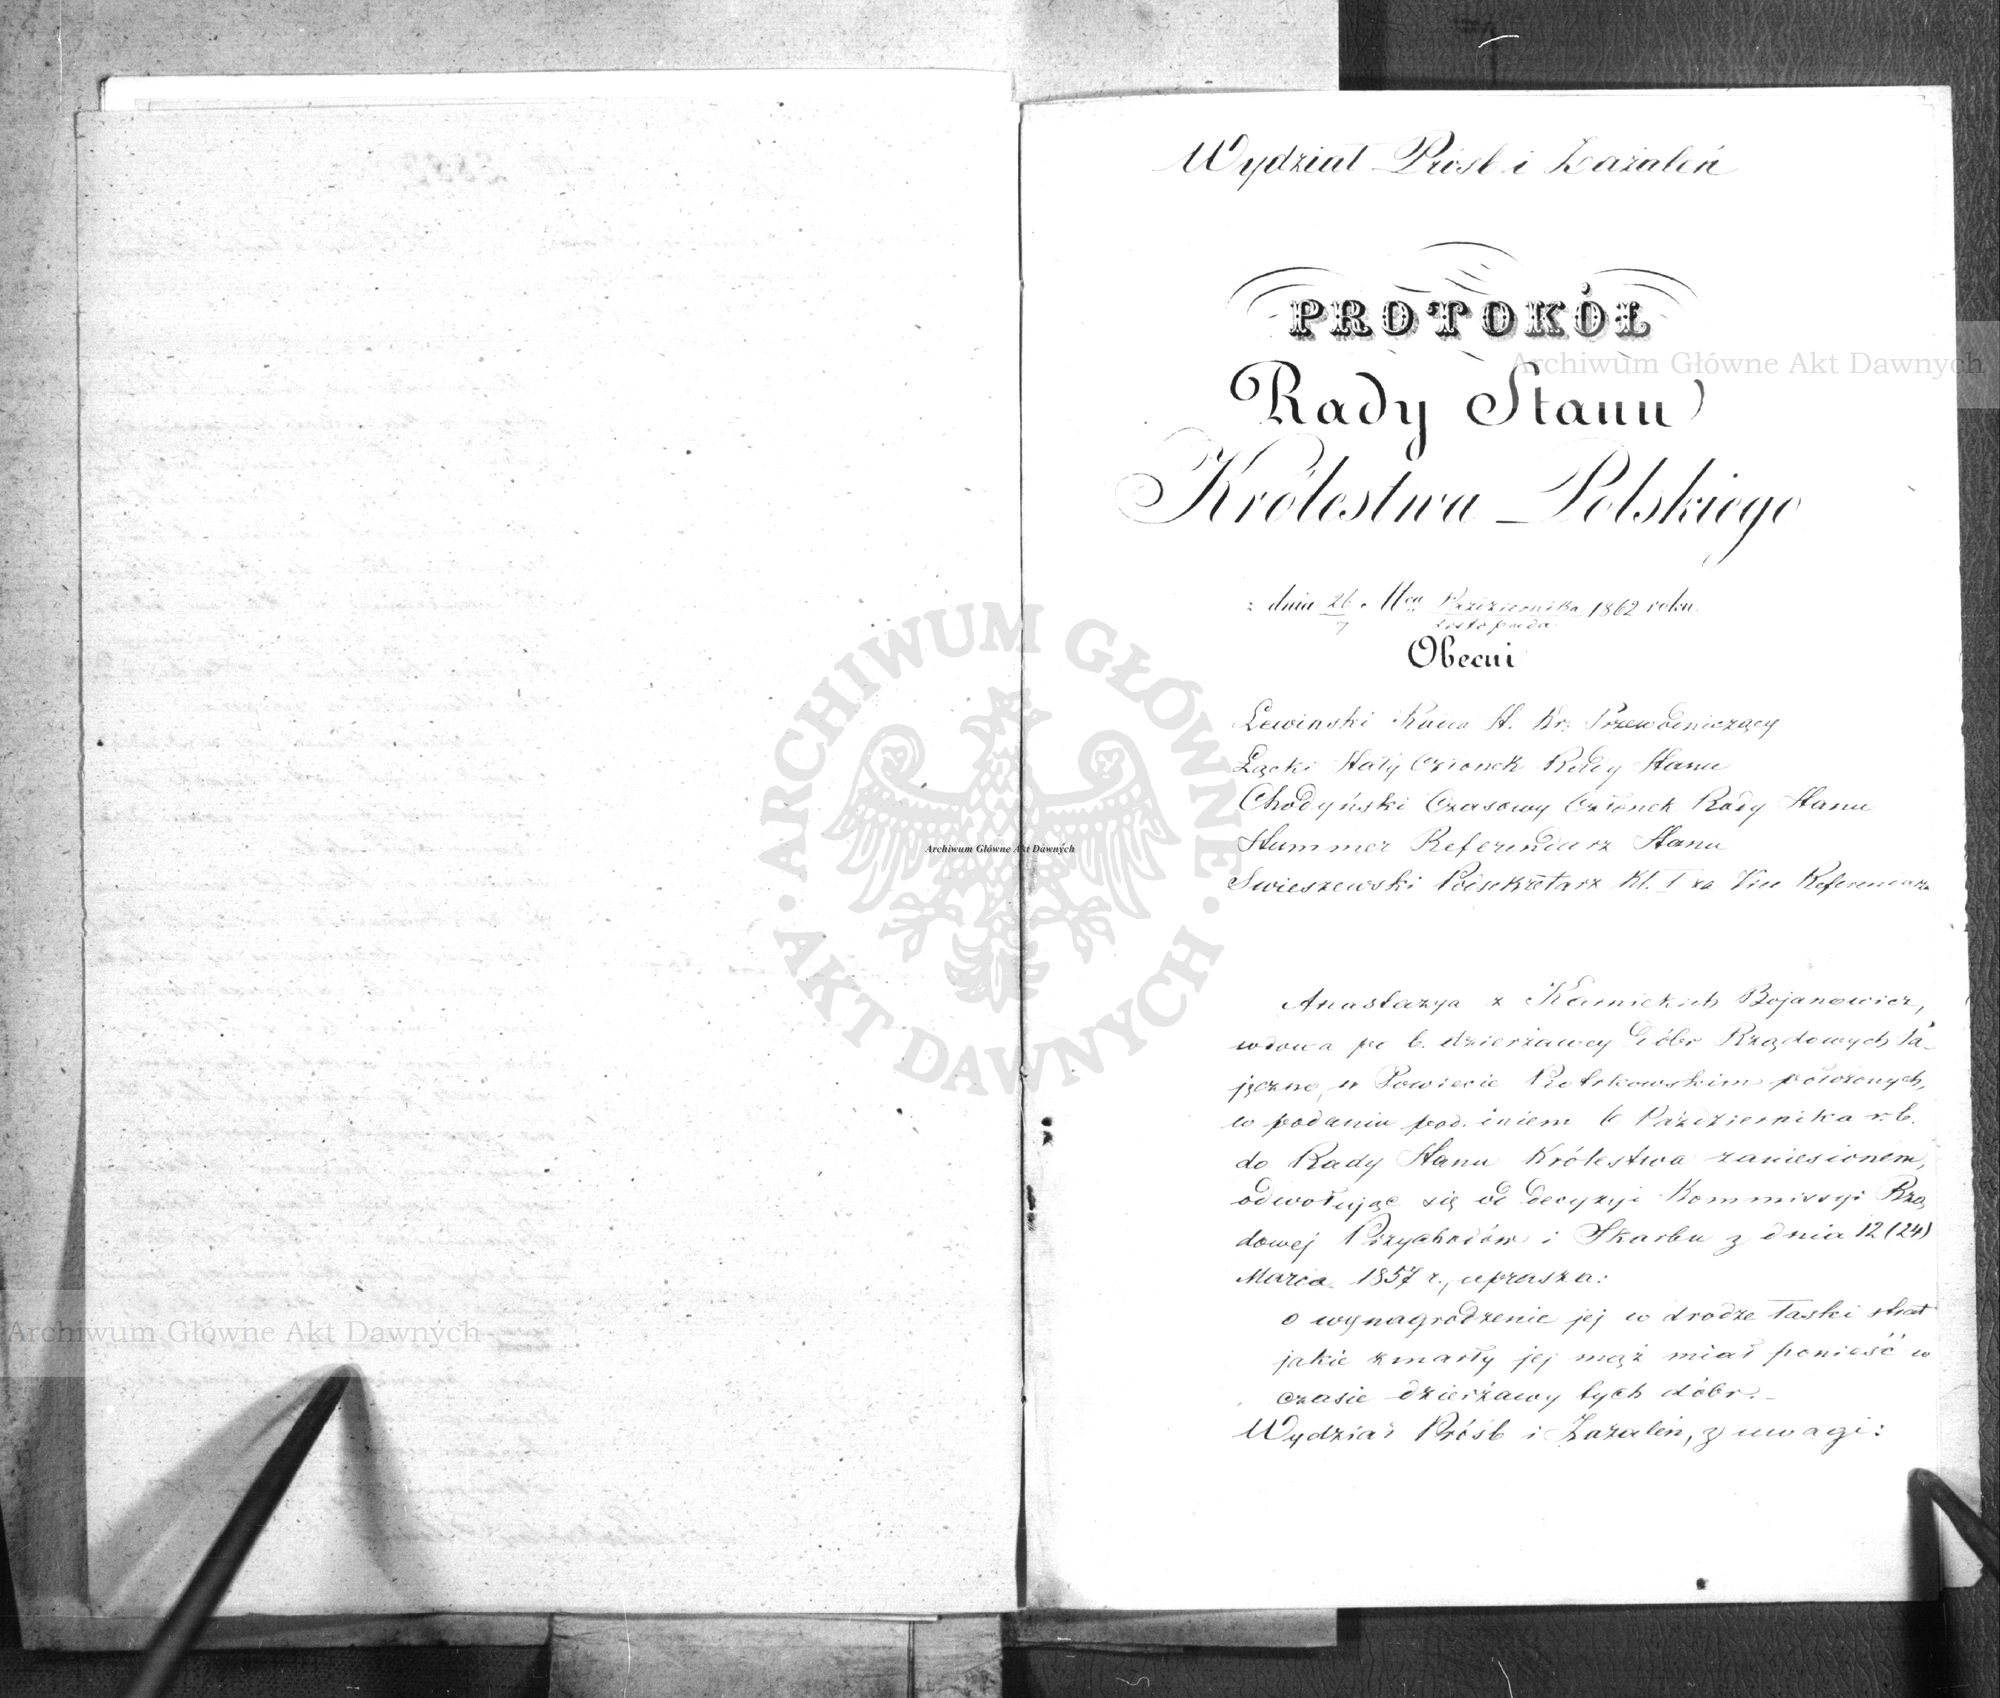 Wydział Próśb i Zażaleń
PROTOKÓŁ
Rady Stanu
Królestwa Polskiego
z dnia 26/7 Mca Października/Listopada 1862 roku.
Obecni
Lewinski Radca St. Kr. Przewodniczący
Łącki Stały Członek Rady Stanu
Chodyński Czasowy Członek Rady Stanu
Stummer Referendarz Stanu
Swieszewski Podsekretarz Kl. I za Vice Referendarza
Anastazya z Karnickich Bojanowicz,
wdowa po b. dzierżawcy Dóbr Rządowych Pa-
jęczno, w Powiecie Piotrkowskim położonych,
w podaniu pod dniem 6 Października r. b.
do Rady Stanu Królestwa zaniesionem,
odwołując się od decyzyi Kommissyi Rzą
dowej Przychodów i Skarbu z dnia 12 (24)
Marca 1857 r., uprasza:
o wynagrodzenie jej w drodze łaski strat
jakie zmarły jej mąż miał ponieść w
czasie dzierżawy tych dóbr.-
Wydział Próśb i Zażaleń, z uwagi:
Archiwum Główne Akt Dawnych
ARCHIWUM GŁÓWNE
AKT DAWNYCH
Archiwum Główne Akt Dawnych
Archiwum Główne Akt Dawnych